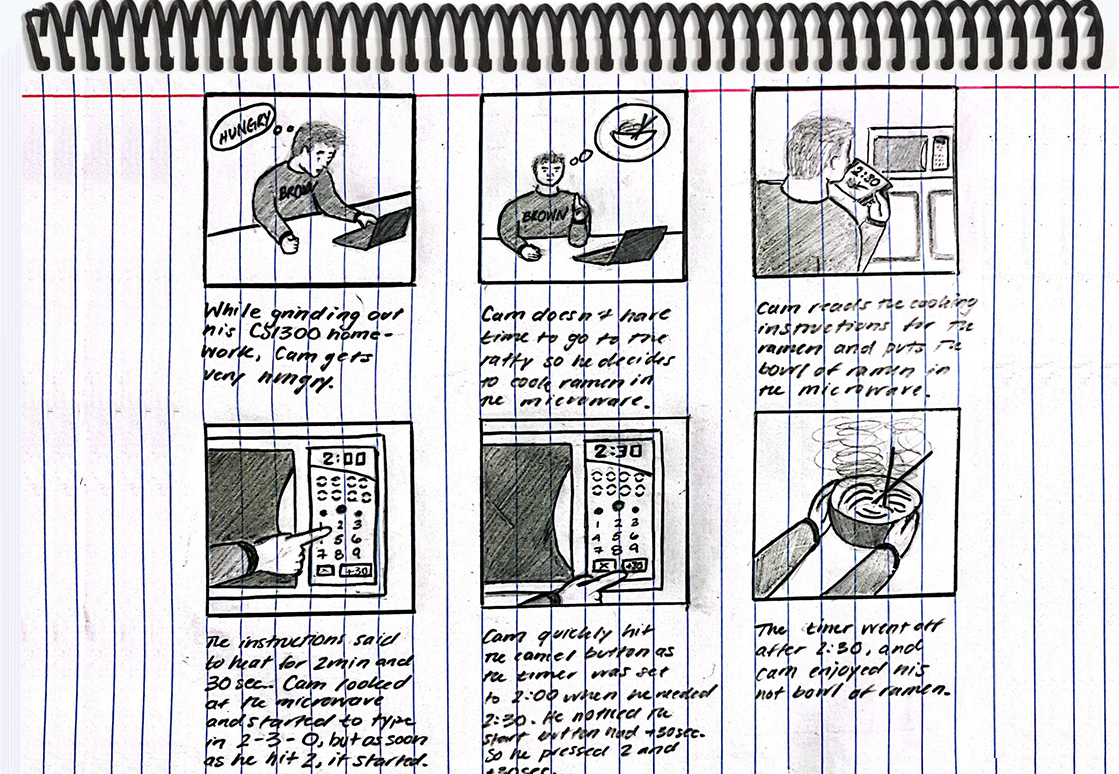 HUNGRY
BROWN
While grinding out
his CS1300 home-
work, Cam gets
very hungry.
BROWN
Cam doesn't have
time to go to the
ratty so he decides
to cook ramen in
the microwave.
2:30
Cam reads the cooking
instructions for the
ramen and puts the
bowl of ramen in
the microwave.
2:00
1 2 3
4 5 6
7 8 9
X +30
The instructions said
to heat for 2min and
30 sec. Cam looked
at the microwave
and started to type
in 2-3-0, but as soon
as he hit 2, it started.
2:30
1 2 3
4 5 6
7 8 9
X +30
Cam quickly hit
the cancel button as
the timer was set
to 2:00 when he needed
2:30. He noticed the
start button had +30sec.
So he pressed 2 and
+30sec.
The timer went off
after 2:30, and
cam enjoyed his
hot bowl of ramen.